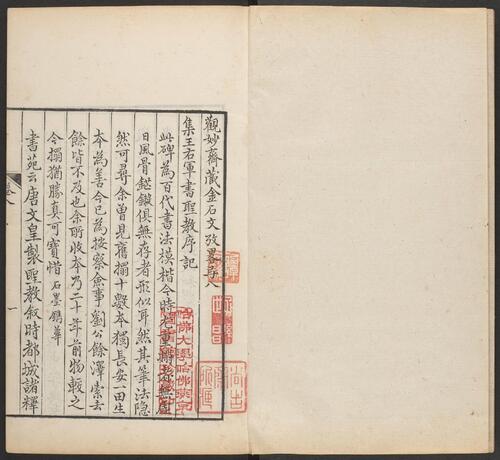 觀妙齋藏金石文攷畧卷八
集王右軍書聖教序記
此碑為百代書法模楷今時
日風骨鎚鍛俱無存者形似耳然其筆法隱
然可尋余曽見舊搨十數本獨長安一田生
本為善今已為按察僉事劉公餘澤索去
餘皆不及也余所收本乃二十年前物較之
今搨猶勝真可寶惜 石墨鐫華
書苑云唐文皇製聖教敘時都城諸釋
卷八
一
哈佛大學哈佛燕京